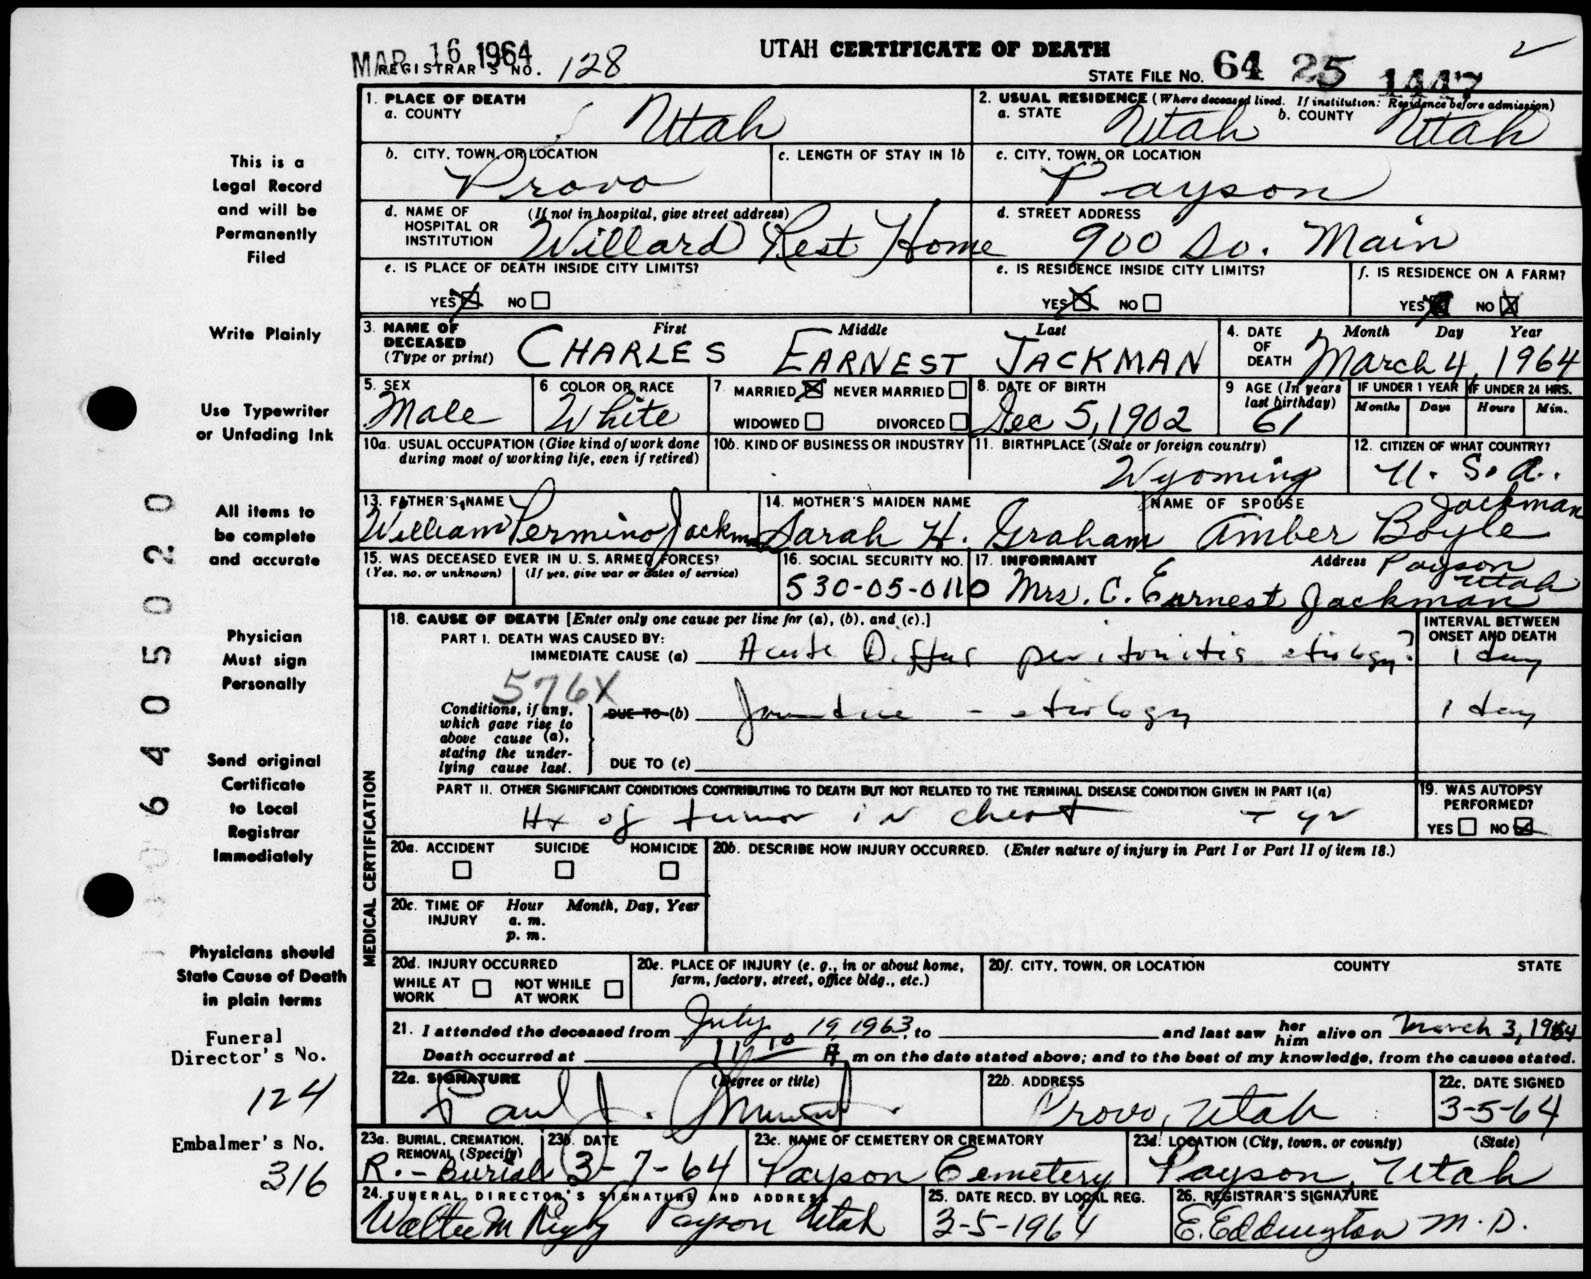 MAR 16 1964
UTAH CERTIFICATE OF DEATH
REGISTRAR'S NO. 128
STATE FILE NO. 64 25 1447
1. PLACE OF DEATH
a. COUNTY Utah
2. USUAL RESIDENCE (Where deceased lived. If institution: Residence before admission)
a. STATE Utah b. COUNTY Utah
b. CITY, TOWN, OR LOCATION Provo
c. LENGTH OF STAY IN 1b
c. CITY, TOWN, OR LOCATION Payson
d. NAME OF HOSPITAL OR INSTITUTION (If not in hospital, give street address) Willard Rest Home
d. STREET ADDRESS 900 So. Main
e. IS PLACE OF DEATH INSIDE CITY LIMITS?
YES NO
e. IS RESIDENCE INSIDE CITY LIMITS?
YES NO
f. IS RESIDENCE ON A FARM?
YES NO
3. NAME OF DECEASED (Type or print) First Middle Last
CHARLES EARNEST JACKMAN
4. DATE OF DEATH Month Day Year
March 4, 1964
5. SEX Male
6. COLOR OR RACE White
7. MARRIED NEVER MARRIED
WIDOWED DIVORCED
8. DATE OF BIRTH Dec 5, 1902
9 AGE (In years last birthday) 61
IF UNDER 1 YEAR Months Days
IF UNDER 24 HRS. Hours Min.
10a. USUAL OCCUPATION (Give kind of work done during most of working life, even if retired)
10b. KIND OF BUSINESS OR INDUSTRY
11. BIRTHPLACE (State or foreign country) Wyoming
12. CITIZEN OF WHAT COUNTRY? U. S. A.
13. FATHER'S NAME William Permino Jackman
14. MOTHER'S MAIDEN NAME Sarah H. Graham
NAME OF SPOUSE Amber Boyle Jackman
15. WAS DECEASED EVER IN U. S. ARMED FORCES?
(Yes, no, or unknown) (If yes, give war or dates of service)
16. SOCIAL SECURITY NO. 530-05-0110
17. INFORMANT Mrs. C. Earnest Jackman
Address Payson Utah
18. CAUSE OF DEATH [Enter only one cause per line for (a), (b), and (c).]
INTERVAL BETWEEN ONSET AND DEATH
PART I. DEATH WAS CAUSED BY:
IMMEDIATE CAUSE (a) Acute Diffus peritonitis etiology? 1 day
576X
Conditions, if any, which gave rise to above cause (a), stating the underlying cause last.
DUE TO (b) Jaundice - etiology 1 day
DUE TO (c)
PART II. OTHER SIGNIFICANT CONDITIONS CONTRIBUTING TO DEATH BUT NOT RELATED TO THE TERMINAL DISEASE CONDITION GIVEN IN PART I(a)
Hx of tumor in chest yr
19. WAS AUTOPSY PERFORMED?
YES NO
MEDICAL CERTIFICATION
20a. ACCIDENT SUICIDE HOMICIDE
20b. DESCRIBE HOW INJURY OCCURRED. (Enter nature of injury in Part I or Part II of item 18.)
20c. TIME OF INJURY Hour a. m. p. m. Month, Day, Year
20d. INJURY OCCURRED
WHILE AT WORK NOT WHILE AT WORK
20e. PLACE OF INJURY (e. g., in or about home, farm, factory, street, office bldg., etc.)
20f. CITY, TOWN, OR LOCATION COUNTY STATE
21. I attended the deceased from July 19, 1963, to and last saw her him alive on March 3, 1964
Death occurred at 11 10 A m on the date stated above; and to the best of my knowledge, from the causes stated.
22a. SIGNATURE (Degree or title)
Paul J.
22b. ADDRESS Provo, Utah
22c. DATE SIGNED 3-5-64
23a. BURIAL, CREMATION, REMOVAL (Specify) R.-Burial
23b. DATE 3-7-64
23c. NAME OF CEMETERY OR CREMATORY Payson Cemetery
23d. LOCATION (City, town, or county) (State) Payson, Utah
24. FUNERAL DIRECTOR'S SIGNATURE AND ADDRESS
Walter M Rigby Payson Utah
25. DATE RECD. BY LOCAL REG. 3-5-1964
26. REGISTRAR'S SIGNATURE E. Eddington M.D.
This is a
Legal Record
and will be
Permanently
Filed
Write Plainly
Use Typewriter
or Unfading Ink
All items to
be complete
and accurate
Physician
Must sign
Personally
Send original
Certificate
to Local
Registrar
Immediately
Physicians should
State Cause of Death
in plain terms
Funeral
Director's No.
124
Embalmer's No.
316
6405020